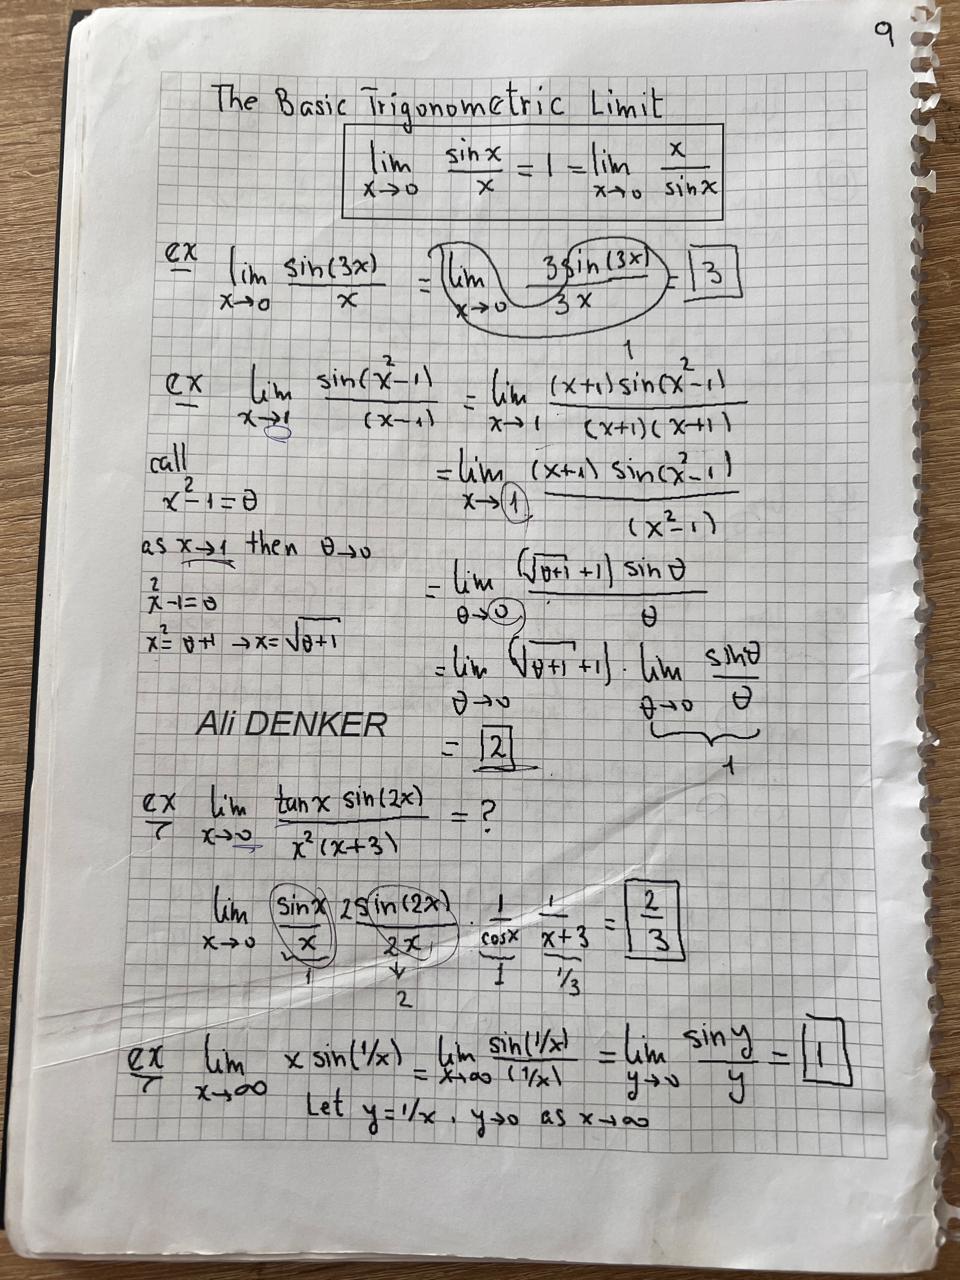 9
The Basic Trigonometric Limit
lim x→0 sinx/x = 1 = lim x→0 x/sinx
ex lim x→0 sin(3x)/x = lim x→0 3sin(3x)/3x = 3
1
ex lim x→1 sin(x²-1)/(x-1) = lim x→1 (x+1)sin(x²-1)/(x+1)(x+1)
call
x²-1=θ
= lim x→1 (x+1) sin(x²-1)/(x²-1)
as x→1 then θ→0
x²-1=θ
x²=θ+1 → x=√θ+1
= lim θ→0 (√θ+1 +1) sinθ/θ
= lim θ→0 (√θ+1 +1) · lim θ→0 sinθ/θ
1
Ali DENKER
= 2
ex lim x→0 tanx sin(2x)/x²(x+3) = ?
lim x→0 sinx/x 2sin(2x)/2x · 1/cosx 1/x+3 = 2/3
1 2 1 1/3
ex lim x→∞ x sin(1/x) = lim x→∞ sin(1/x)/(1/x) = lim y→0 siny/y = 1
Let y=1/x, y→0 as x→∞